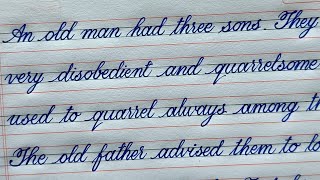 An old man had three sons. They
very disobedient and quarrelsome
used to quarrel always among
The old father advised them to